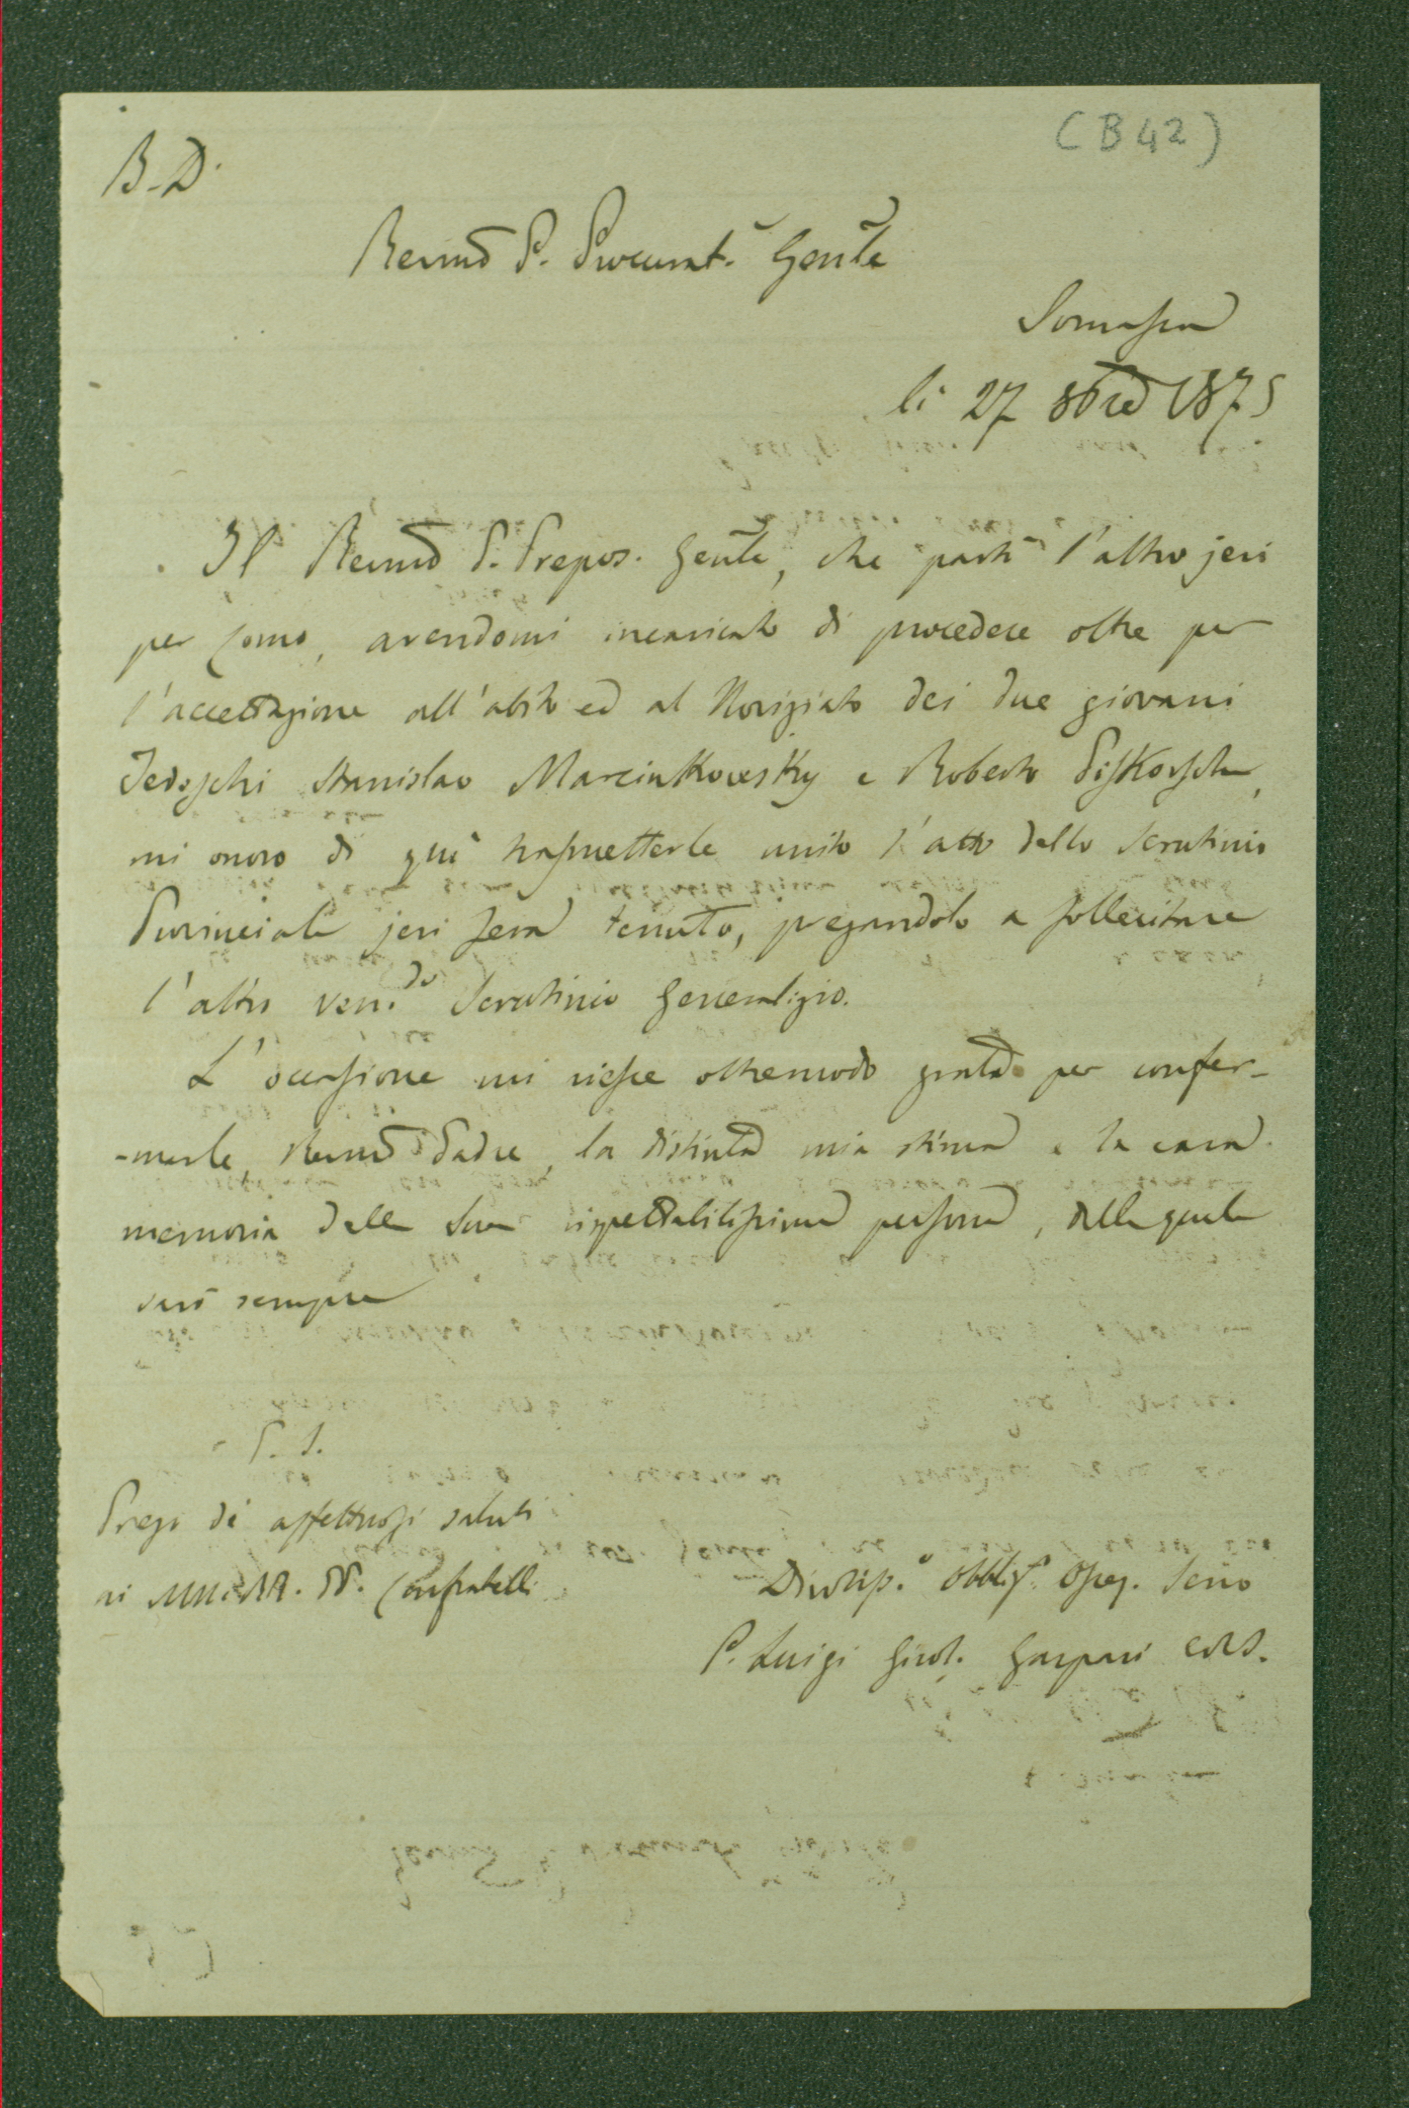 (B42)
B. D.
Revmo P. Procurat.e Genle
Somasca
li 27 8bre 1875
Il Revmo P. Prepos. Genle, che partì l'altro jeri
per Como, avendomi incaricato di procedere oltre per
l'accettazione all'abito ed al Noviziato dei due giovani
Tedeschi Stanislao Marcinkkowesky e Roberto
mi onoro di quì trasmetterle unito l'atto dello Scrutinio
Provinciale jeri sera tenuto, pregandolo a sollecitare
l'altro ven.do Scrutinio Generalizio.
L'occasione mi riesce oltremodo grata per confer-
-marle, Revmo Padre, la distinta mia stima e la cara
memoria della Sua rispettabilissima persona, della quale
sarò sempre
P. S.
Prego di affettuosi saluti
ai MM. RR. PP. Confratelli
Divotis.o Obblig.o Osseq. Servo
P. Luigi Girol. Gaspari CRS.